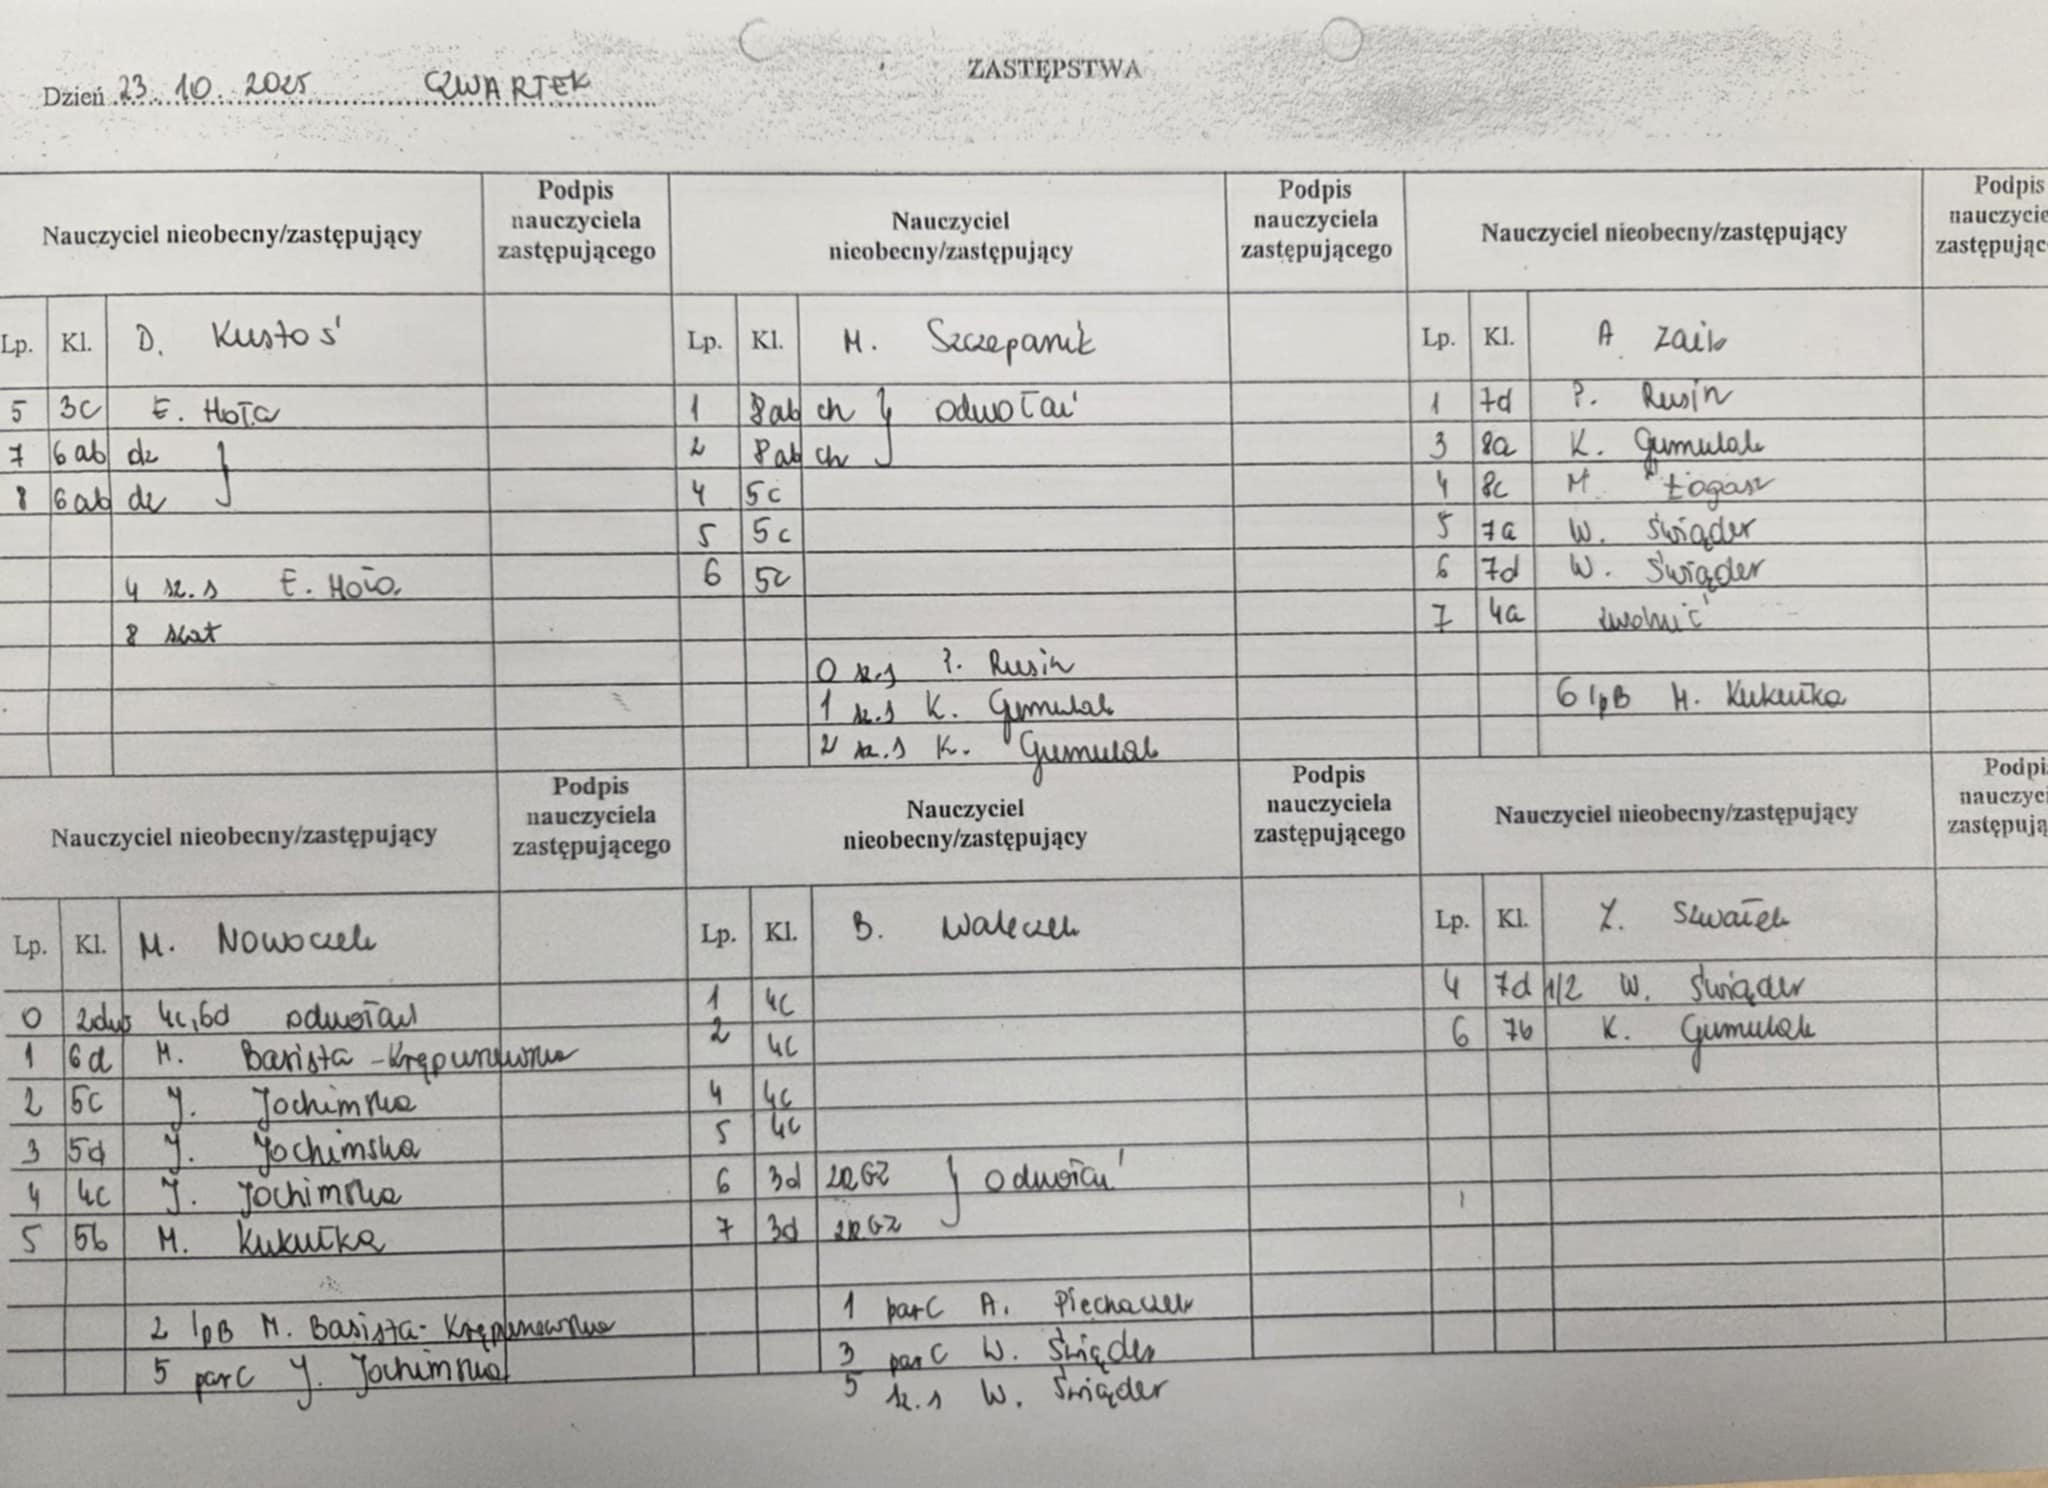 ZASTĘPSTWA
Dzień 23.10.2025 CZWARTEK
Nauczyciel nieobecny/zastępujący
Podpis nauczyciela zastępującego
Lp. Kl. D. Kustoś
5 3c E. Hoła
7 6ab dz
8 6ab dz
4 sz.s E. Hoła
8 szat
Nauczyciel nieobecny/zastępujący
Podpis nauczyciela zastępującego
Lp. Kl. M. Szczepanik
1 8ab ch } odwołać
2 8ab ch
4 5c
5 5c
6 5c
0 sz.s P. Rusin
1 sz.s K. Gumulak
2 sz.s K. Gumulak
Nauczyciel nieobecny/zastępujący
Podpis
Lp. Kl. A Zaik
1 7d P. Rusin
3 8a K. Gumulak
4 8c M. Łogasz
5 7a W. Świąder
6 7d W. Świąder
7 4a zwolnić
6 łpB M. Kukułka
Nauczyciel nieobecny/zastępujący
Podpis nauczyciela zastępującego
Lp. Kl. M. Nowoczek
0 4c,6d odwołać
1 6d M. Basista-Krępunewska
2 5c J. Jochimska
3 5d J. Jochimska
4 4c J. Jochimska
5 5b M. Kukułka
2 łpB M. Basista-Krępunewska
5 parC J. Jochimska
Nauczyciel nieobecny/zastępujący
Podpis nauczyciela zastępującego
Lp. Kl. B. Waleczek
1 4c
2 4c
4 4c
5 4c
6 3d } odwołać
7 3d
1 parC A. Piechaczek
3 parC W. Świąder
5 sz.s W. Świąder
Nauczyciel nieobecny/zastępujący
Lp. Kl. Z. Szwałek
4 7d 1/2 W. Świąder
6 7b K. Gumulak